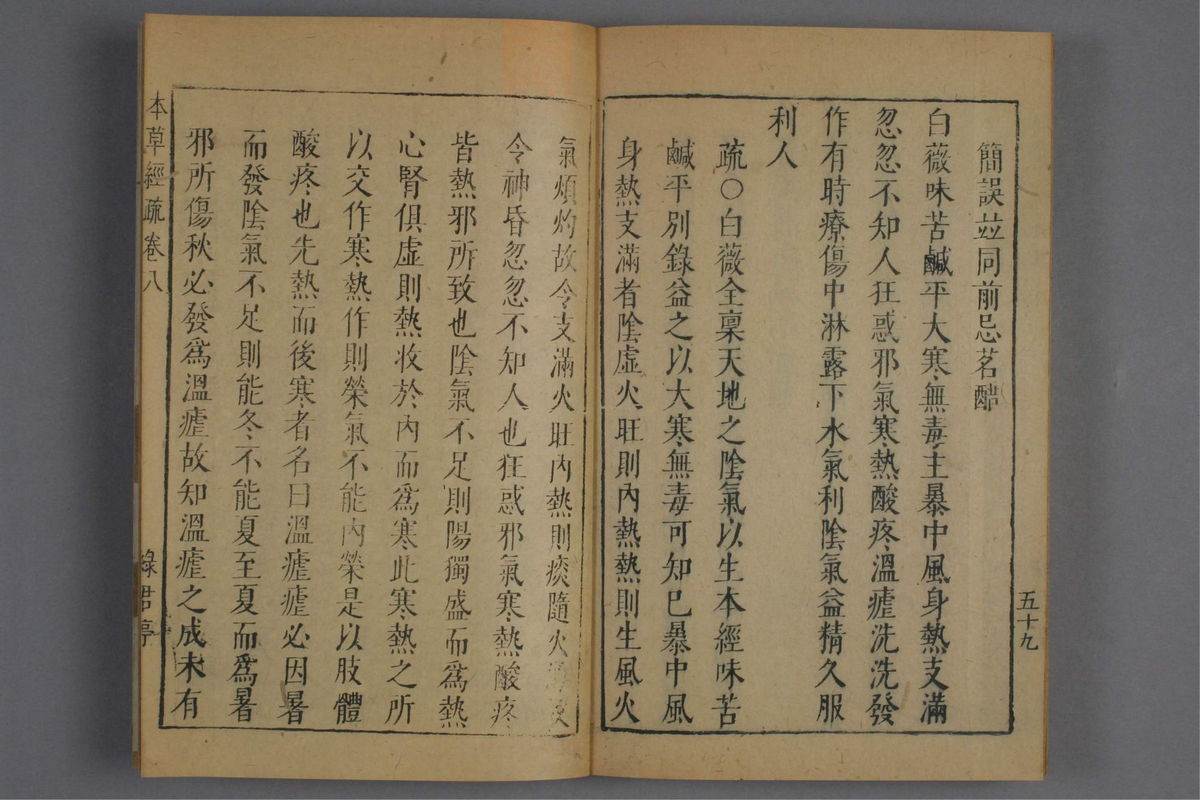 簡誤並同前忌茗醋
白薇味苦鹹平大寒無毒主暴中風身熱支滿
忽忽不知人狂惑邪氣寒熱酸疼溫瘧洗洗發
作有時療傷中淋露下水氣利陰氣益精久服
利人
疏○白薇全稟天地之陰氣以生本經味苦
鹹平別錄益之以大寒無毒可知已暴中風
身熱支滿者陰虛火旺則內熱熱則生風火
五十九
氣煩灼故令支滿火旺內熱則痰隨火
令神昏忽忽不知人也狂惑邪氣寒熱酸疼
皆熱邪所致也陰氣不足則陽獨盛而為熱
心腎俱虛則熱收於內而為寒此寒熱之所
以交作寒熱作則榮氣不能內榮是以肢體
酸疼也先熱而後寒者名曰溫瘧瘧必因暑
而發陰氣不足則能冬不能夏至夏而為暑
邪所傷秋必發為溫瘧故知溫瘧之成未有
本草經疏卷八
綠君亭